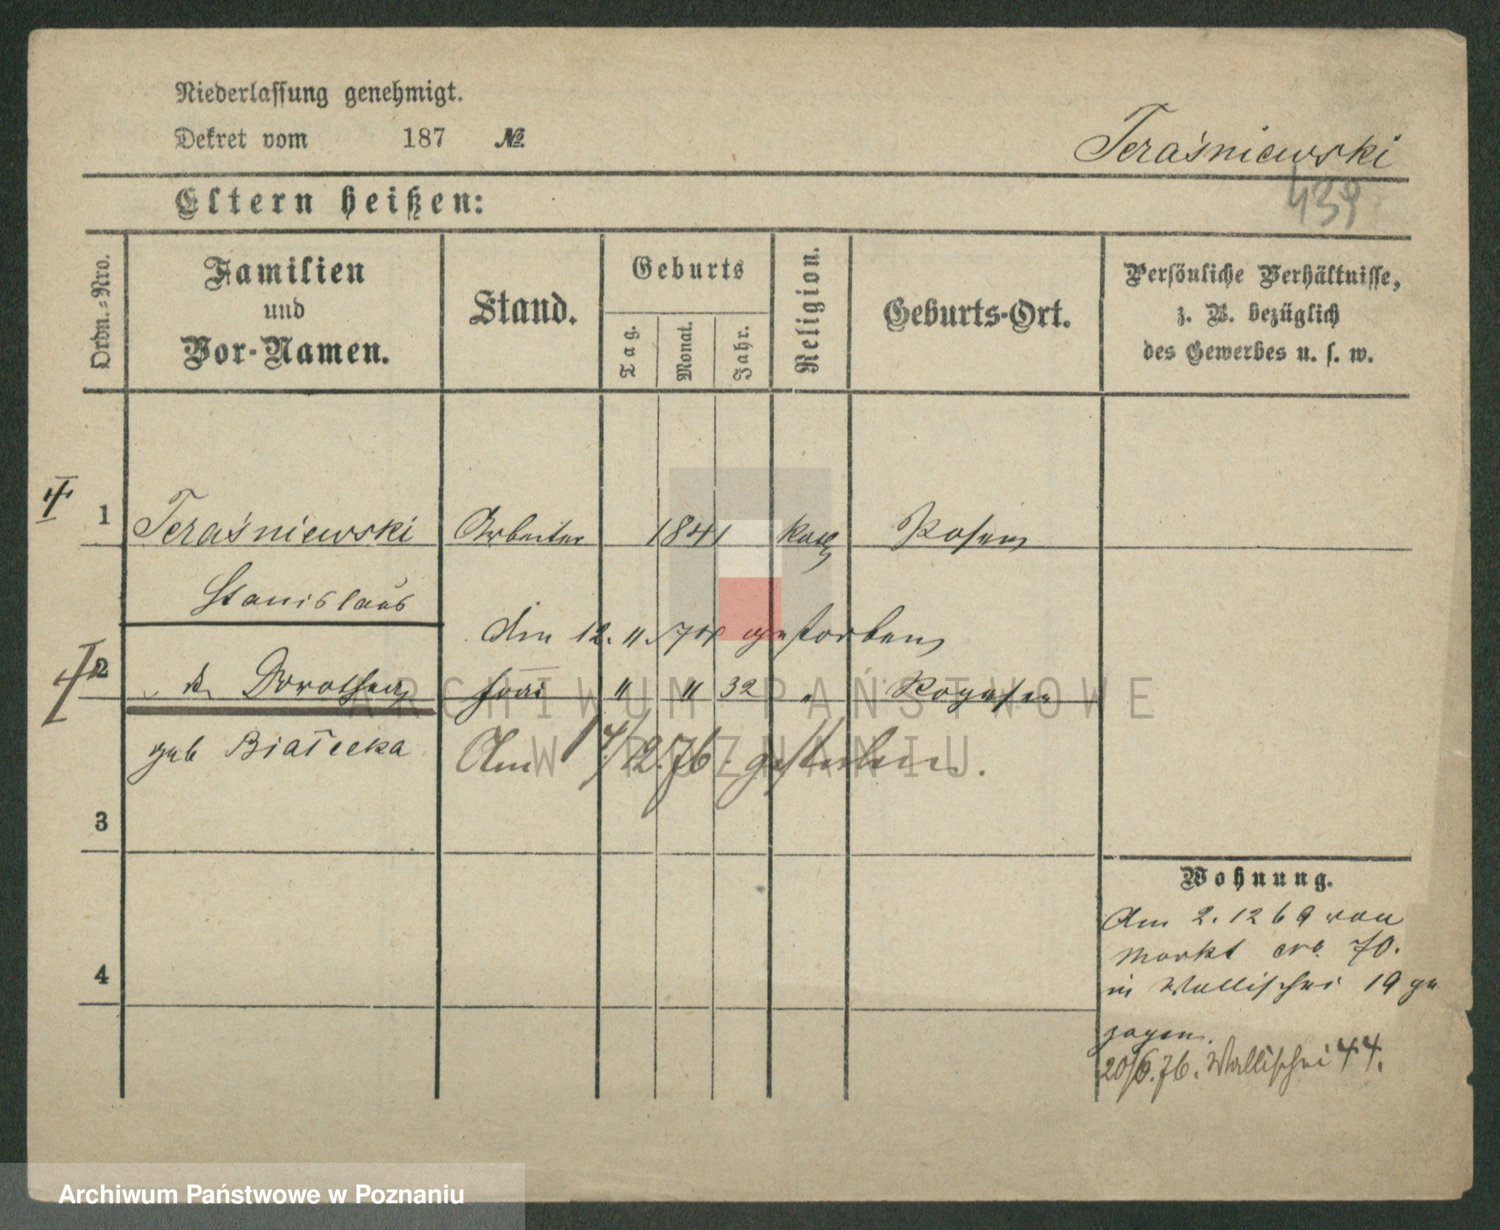 Niederlassung genehmigt.
Dekret vom 187 №
Teraśniewski
439
Eltern heißen:
Ordn.-Nro.
Familien
und
Vor-Namen.
Stand.
Geburts
Tag.
Monat.
Jahr.
Religion.
Geburts-Ort.
Persönliche Verhältnisse,
z. B. bezüglich
des Gewerbes u. s. w.
1 Teraśniewski Arbeiter 1841 kath Posen
Stanislaus
Am 12. 11. gestorben
2 Dorothea Frau " " 32 " Rogasen
geb Białecka Am 14/12.76. gestorben.
3
4
Wohnung.
Am 2. 12 69 von
Markt No. 70.
in Wallischei 19 ge
zogen.
20/6.76. Wallischei 44.
ARCHIWUM PAŃSTWOWE
W POZNANIU
Archiwum Państwowe w Poznaniu